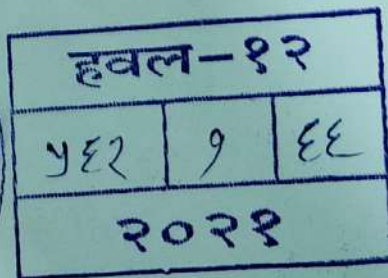 हवल-१२
५६२ १ ६६
२०२१